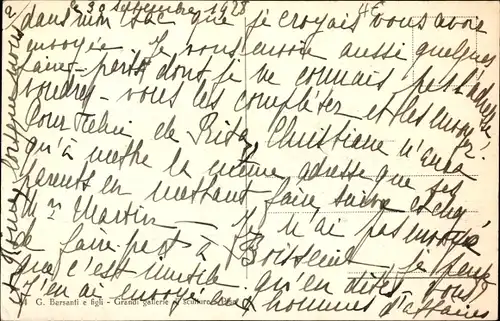 le 30 septembre 1928
dans mon sac que je croyais vous avoir
envoyée. Je vous envoie aussi quelques
faire-parts dont je ne connais pas l'adresse
voudrez-vous les compléter et les envoyer.
Pour celui de Rita, Christiane n'aura
qu'à mettre la même adresse que ses
parents en mettant faire suivre et chez
Mr Martin — Je n'ai pas envoyé
de faire-part à je pense
que c'est inutile qu'en dites vous
J'en ai envoyé à 2 hommes d'affaires
G. Bersanti e figli - Grandi gallerie di sculture - Pisa
4€